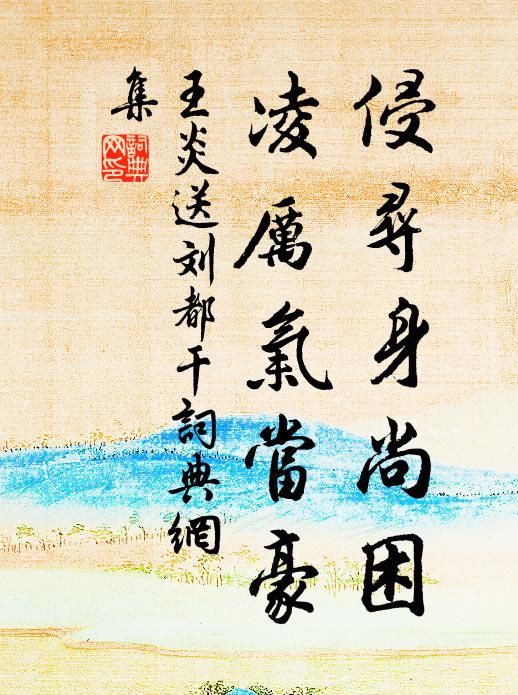 侵尋身尚困
凌厲氣當豪
王炎送刘都干詞典網
集
詞典
网印